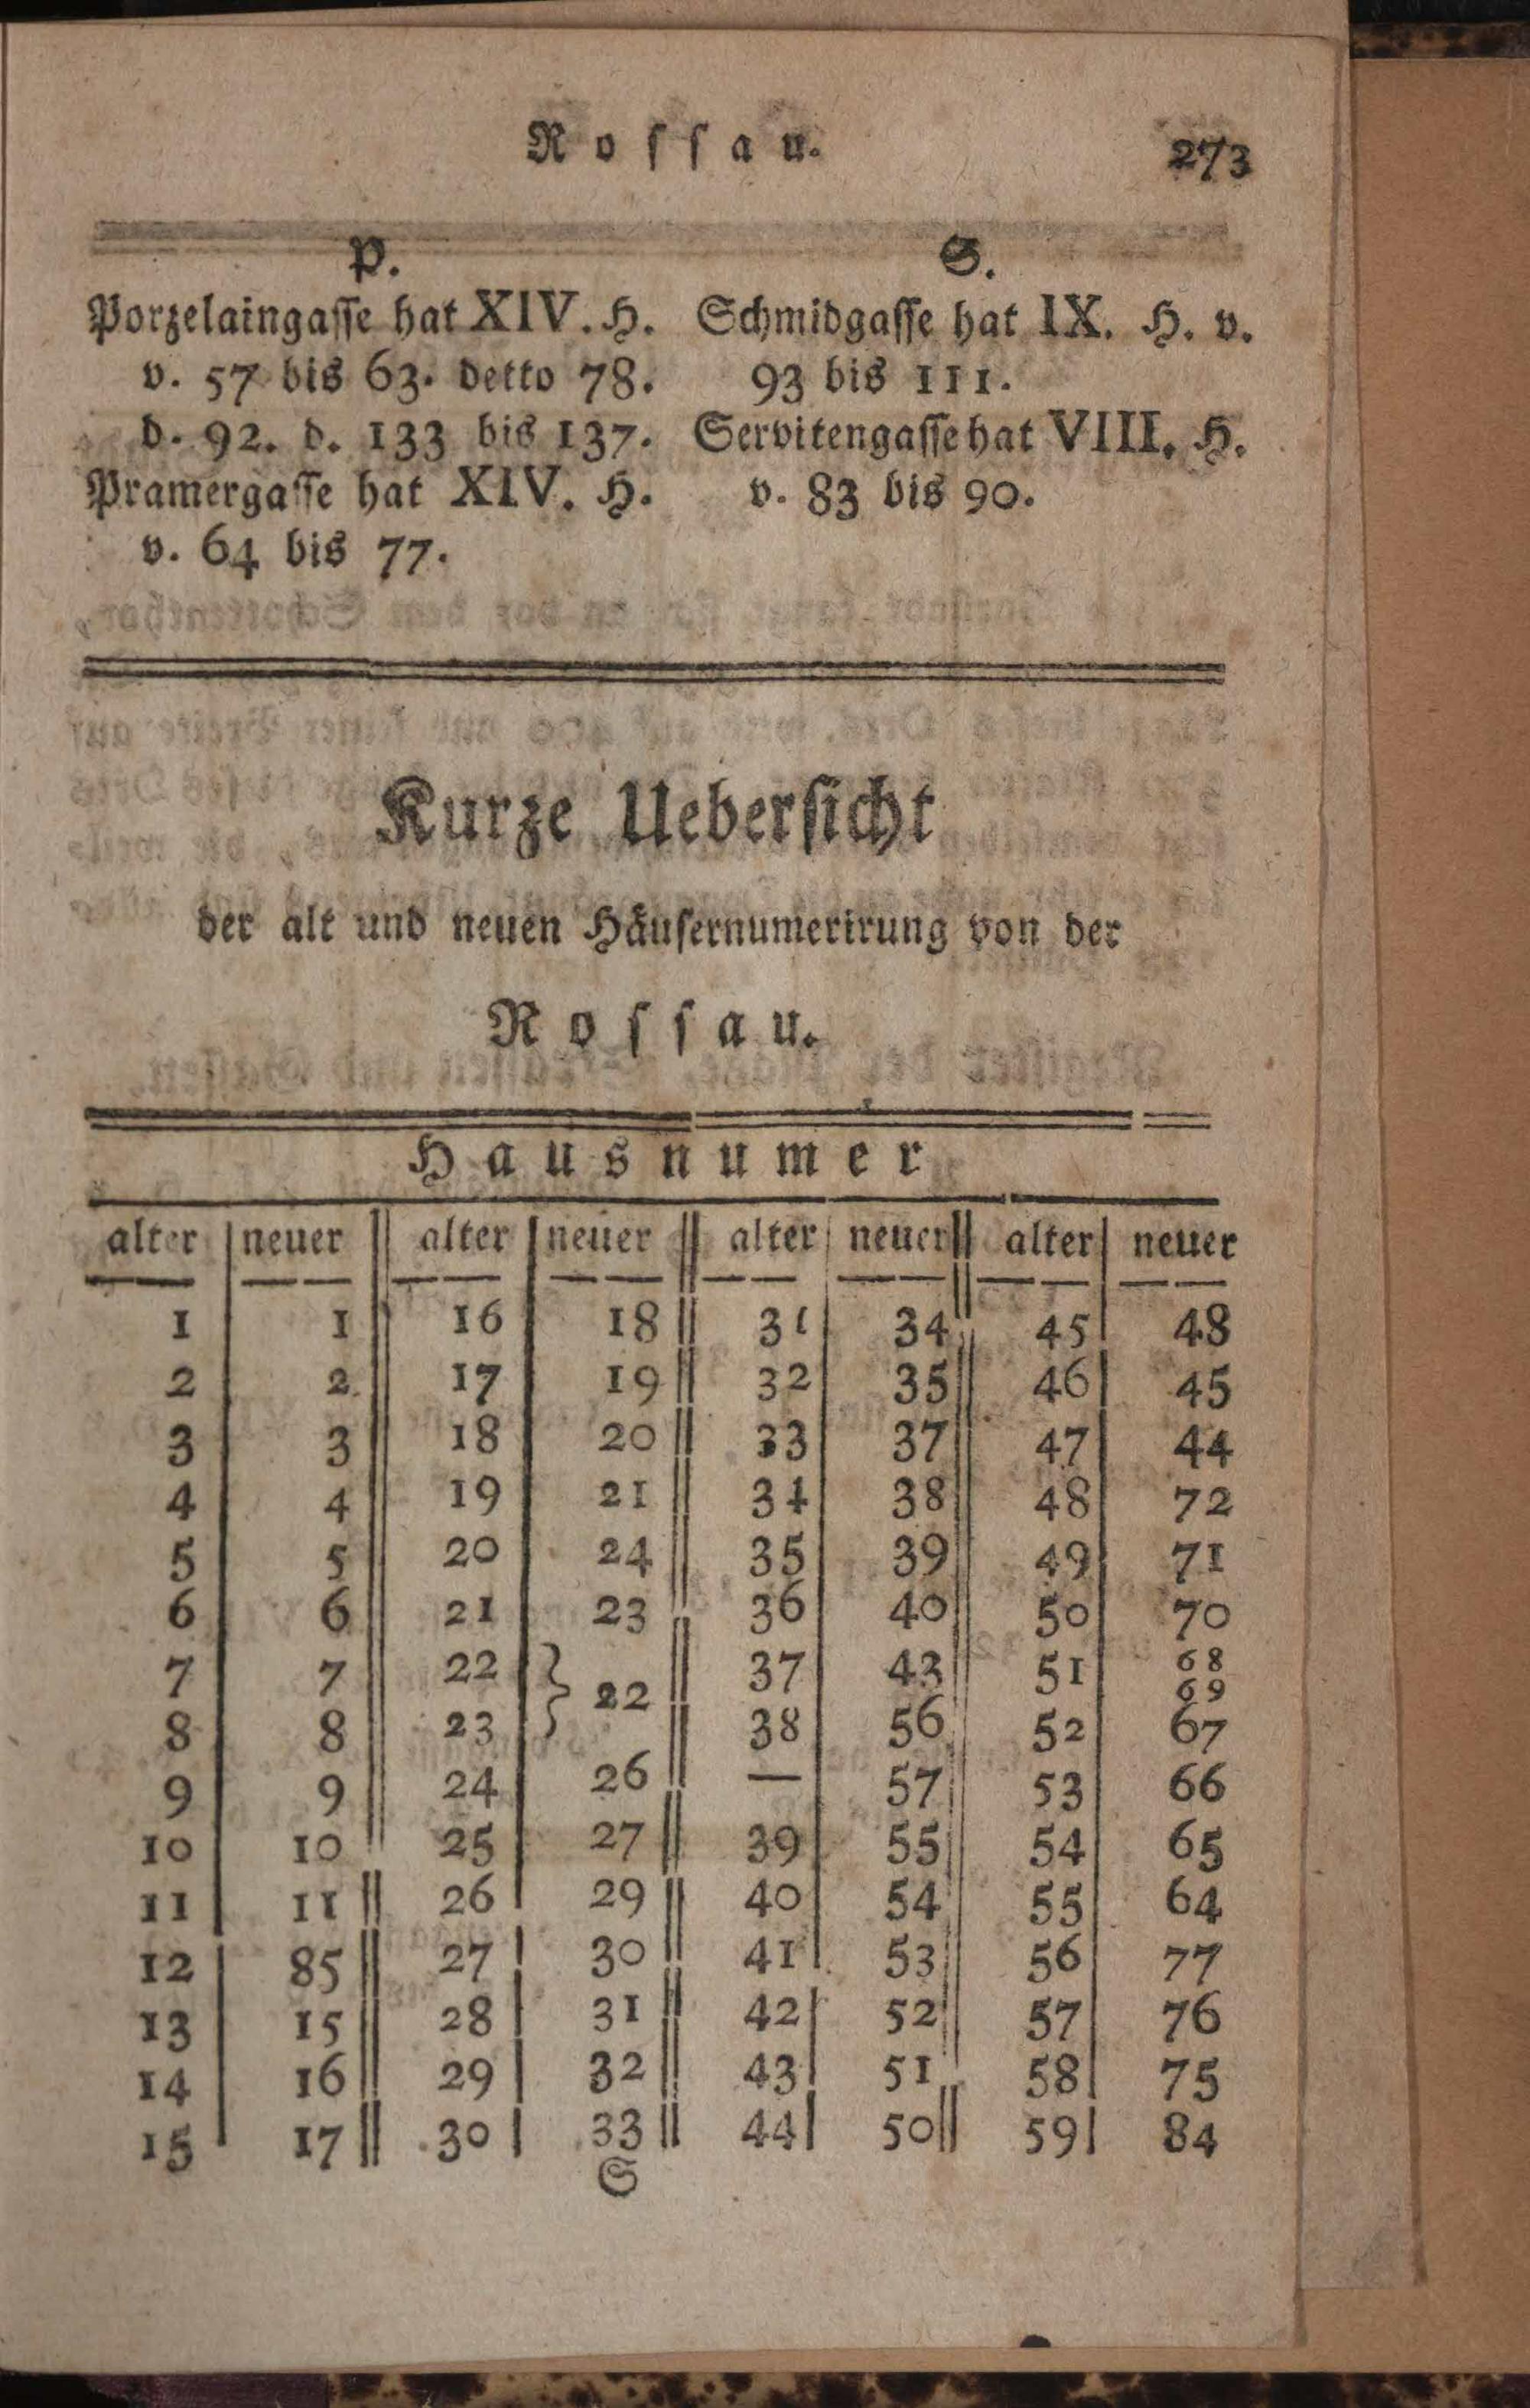 Rossau.
273
P.
Porzelaingasse hat XIV. H.
v. 57 bis 63. detto 78.
d. 92. d. 133 bis 137.
Pramergasse hat XIV. H.
v. 64 bis 77.
S.
Schmidgasse hat IX. H. v.
93 bis 111.
Servitengasse hat VIII. H.
v. 83 bis 90.
Kurze Uebersicht
der alt und neuen Häusernumerirung von der
Rossau.
Hausnumer
alter | neuer || alter | neuer || alter | neuer || alter | neuer
1 | 1 || 16 | 18 || 31 | 34 || 45 | 48
2 | 2 || 17 | 19 || 32 | 35 || 46 | 45
3 | 3 || 18 | 20 || 33 | 37 || 47 | 44
4 | 4 || 19 | 21 || 34 | 38 || 48 | 72
5 | 5 || 20 | 24 || 35 | 39 || 49 | 71
6 | 6 || 21 | 23 || 36 | 40 || 50 | 70
7 | 7 || 22 } 22 || 37 | 43 || 51 | 68 69
8 | 8 || 23 } || 38 | 56 || 52 | 67
9 | 9 || 24 | 26 || — | 57 || 53 | 66
10 | 10 || 25 | 27 || 39 | 55 || 54 | 65
11 | 11 || 26 | 29 || 40 | 54 || 55 | 64
12 | 85 || 27 | 30 || 41 | 53 || 56 | 77
13 | 15 || 28 | 31 || 42 | 52 || 57 | 76
14 | 16 || 29 | 32 || 43 | 51 || 58 | 75
15 | 17 || 30 | 33 || 44 | 50 || 59 | 84
S